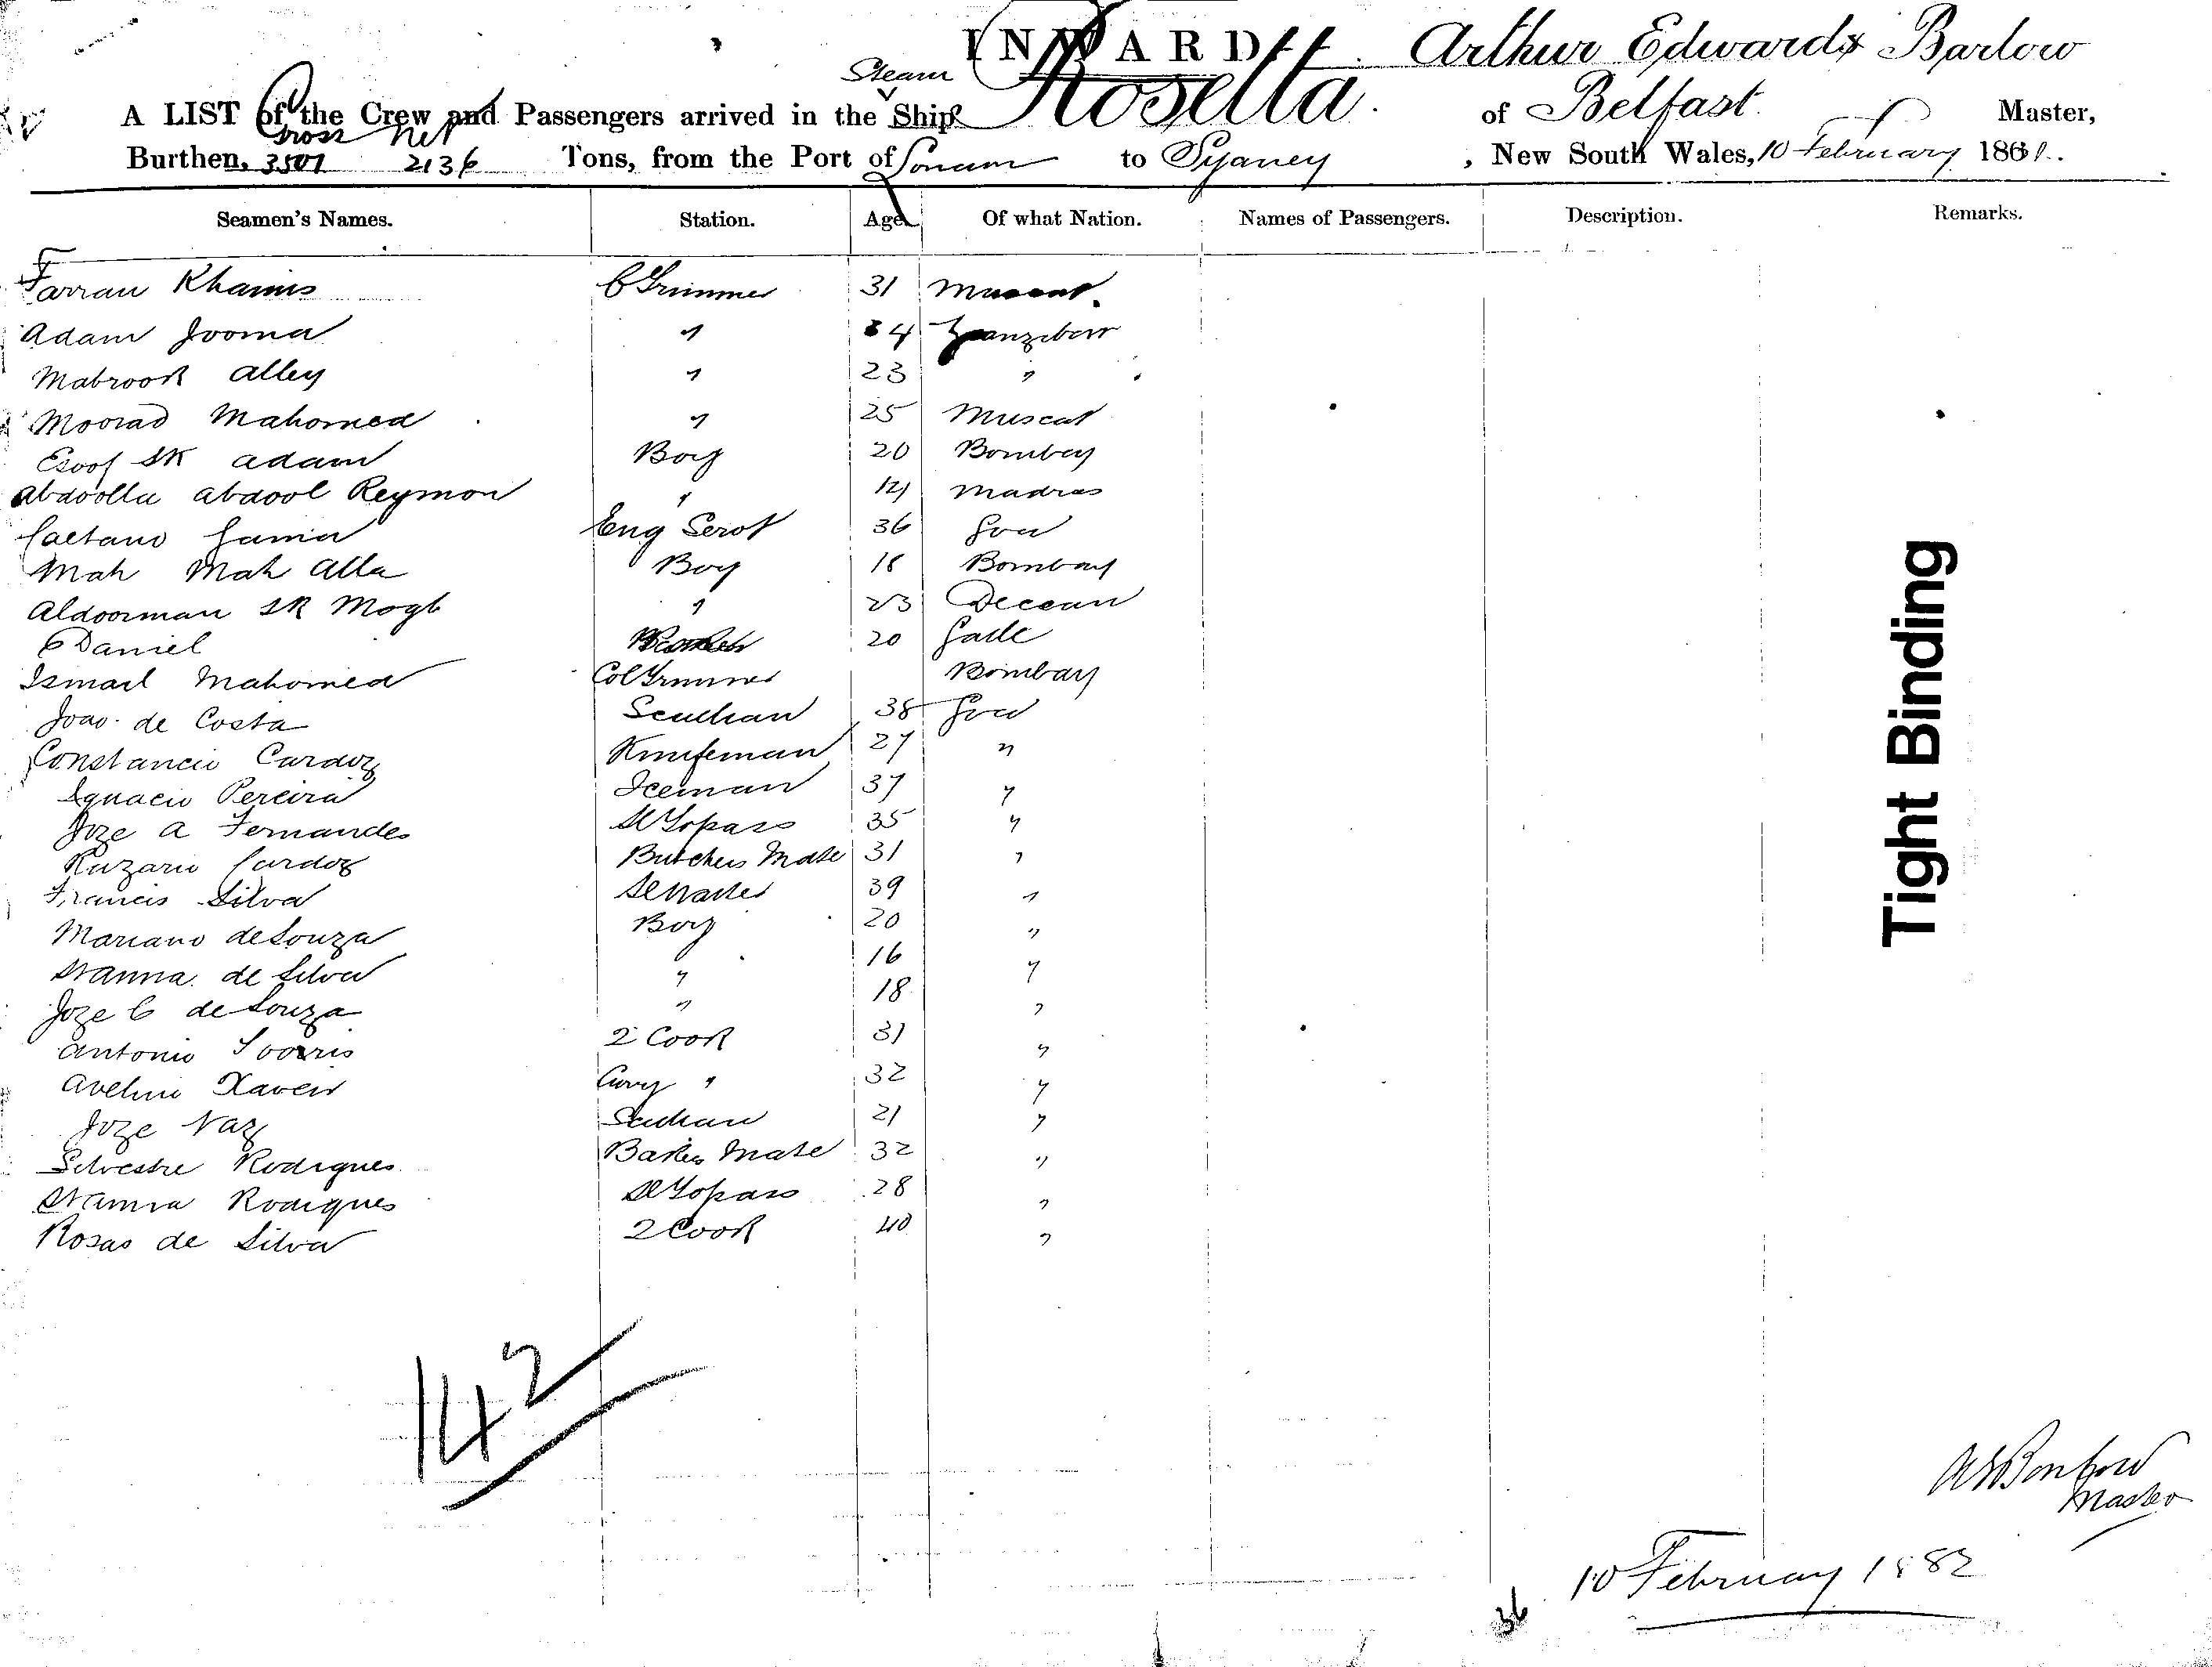 INWARD.
Steam
Rosetta. Arthur Edwards Barlow
A LIST of the Crew and Passengers arrived in the Ship of Belfast Master,
Gross Net
Burthen, 3501 2136 Tons, from the Port of London to Sydney, New South Wales, 10 February 188
Seamen's Names. Station. Age Of what Nation. Names of Passengers. Description. Remarks.
Farran Khamis C Trimmer 31 Muscat
Adam Jooma " 34 Zanzibar
Mabrook Alley " 23 "
Moorad Mahomed " 25 Muscat
Esoof SK Adam Boy 20 Bombay
Abdoolla Abdool Reymon " Madras
Caetano Gama Eng Servt 36 Goa
Mah Mah Alla Boy 18 Bombay
Aldoorman SK Mogb " 23 Deccan
C Daniel 20 Galle
Ismail Mahomed Col Trimmer Bombay
Joao de Costa Scullion 38 Goa
Constancio Cardoz Knifeman 27 "
Ignacio Pereira Iceman 37 "
Joze A Fernandes Topass 35 "
Ruzario Cardoz Butchers Mate 31 "
Francis Silva 39 "
Mariano de Souza Boy 20 "
de Silva " 16 "
Joze C de Souza " 18 "
Antonio 2 Cook 31 "
Avelino Xaveir Curry " 32 "
Joze Vaz Scullion 21 "
Silvestre Rodrigues Bakers Mate 32 "
Rodrigues Topass 28 "
Rosas de Silva 2 Cook 40 "
142
Tight Binding
A E Barlow
Master
10 February 1882
36